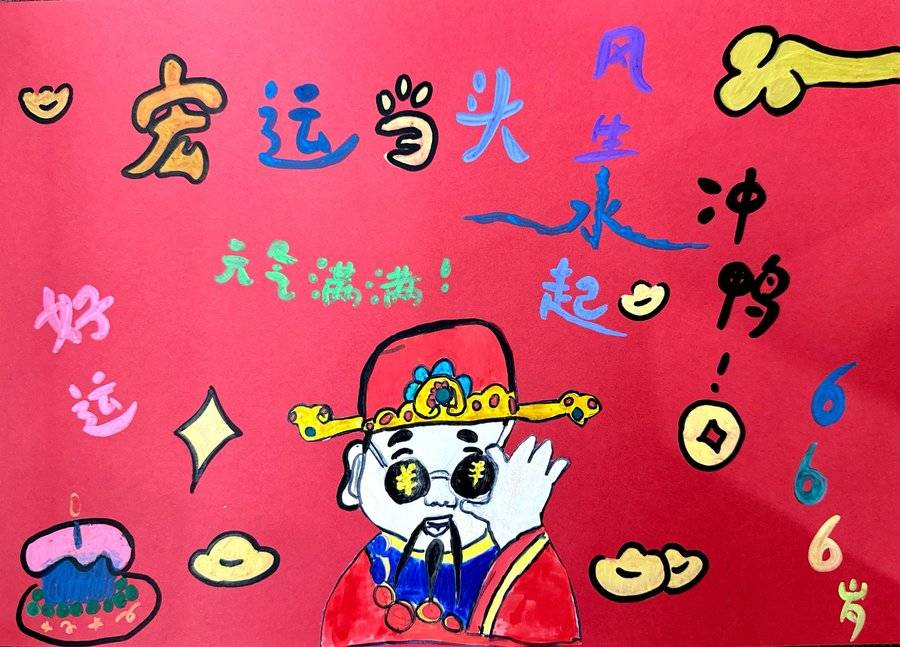 宏运当头
风生水起
冲鸭!
元气满满!
好运
666岁